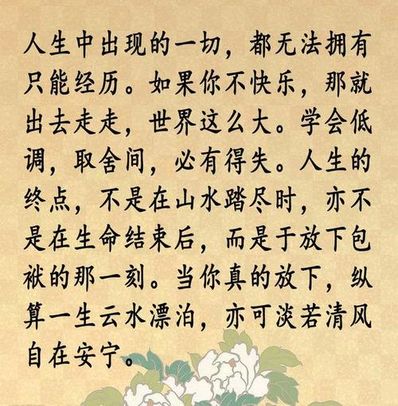 人生中出现的一切，都无法拥有
只能经历。如果你不快乐，那就
出去走走，世界这么大。学会低
调，取舍间，必有得失。人生的
终点，不是在山水踏尽时，亦不
是在生命结束后，而是于放下包
袱的那一刻。当你真的放下，纵
算一生云水漂泊，亦可淡若清风
自在安宁。